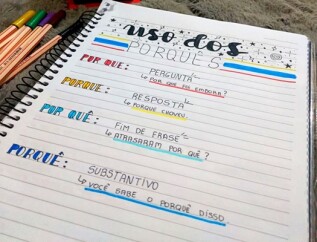 uso dos
PORQUÊS
POR QUE: PERGUNTA
↳ POR QUE FOI EMBORA?
PORQUE: RESPOSTA
↳ PORQUE CHOVEU.
POR QUÊ: FIM DE FRASE
↳ ATRASARAM POR QUÊ?
PORQUÊ: SUBSTANTIVO
↳ VOCÊ SABE O PORQUÊ DISSO